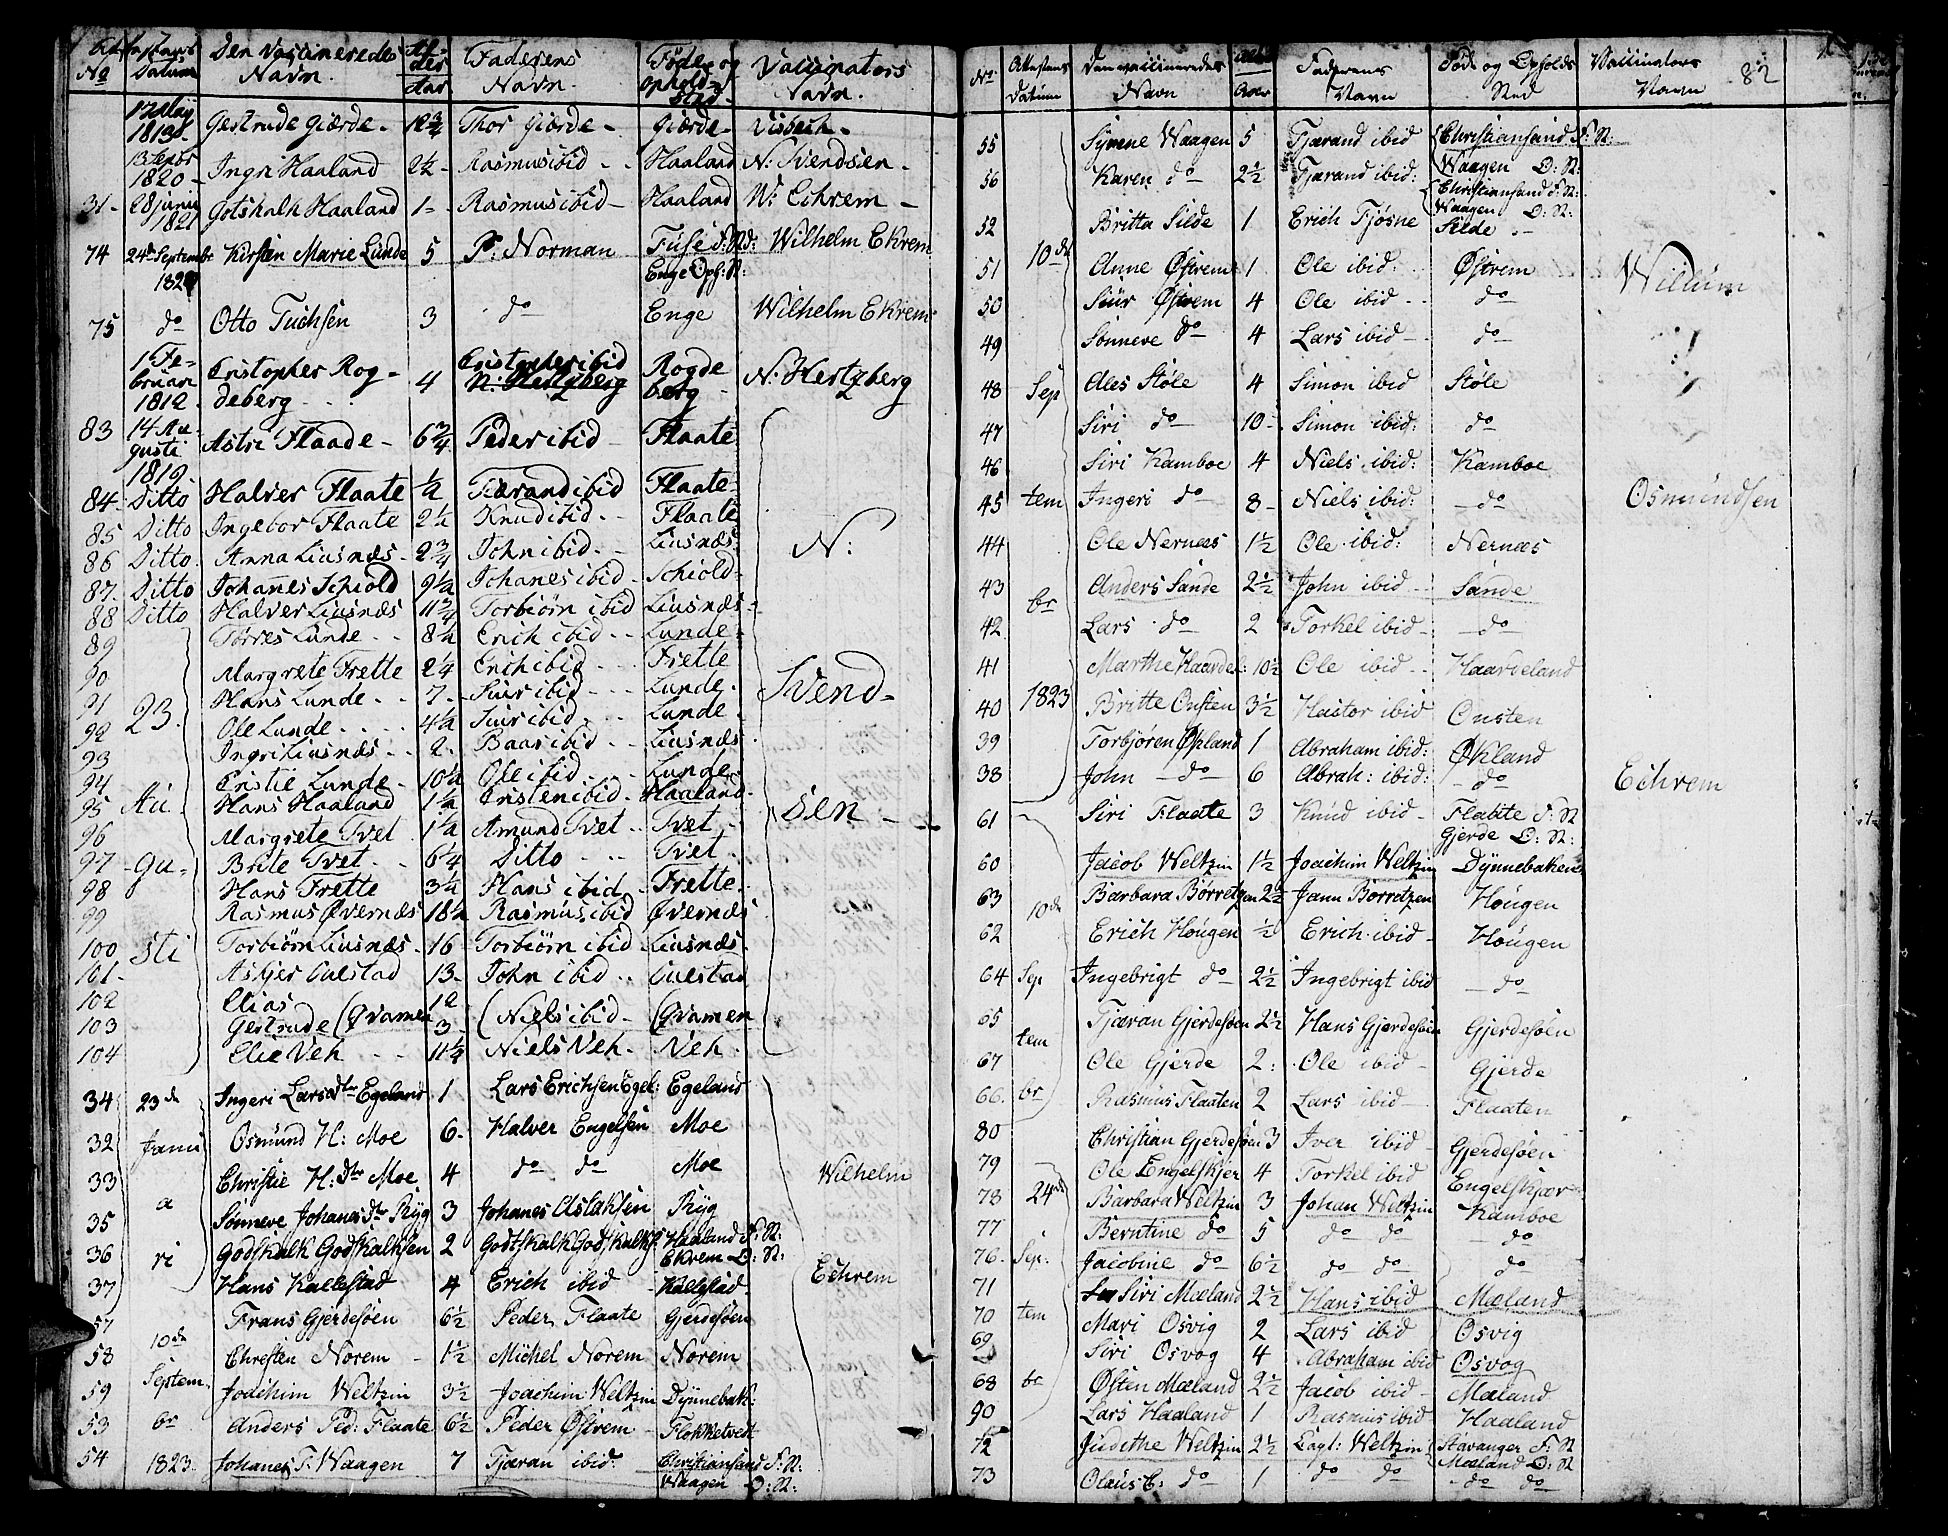 No Attestans Datum Den Vaccineredes Navn. Alder Aar Faderens Navn. Føde- og Opholds Sted. Vaccinators Navn.
17 Maj 1813 Gertrude Giærde - 12 3/4 Thor Giærde - Giærde - Disbech -
13 Sepbr 1820 - Ingri Haaland 2 1/2 - Rasmus ibid - - Haaland N: Svendsen -
31 - 28 junii 1821 Gotshalk Haaland 1 - Rasmus ibid - Haaland W: Echrem -
74 24de Septembr 182 Kirsten Marie Lunde 5 P: Norman Fuse F: St: Enge Oph: St: Wilhelm Ekrem
75 do Otto Tuchsen 3 do Enge Wilhelm Ekrem
1 Februari 1812 - Cristopher Rogdeberg - 4 Cristopher ibid N: Hertzberg Rogdeberg - N: Hertzberg
83 14 Augusti 1819. Astri Flaade - 6 3/4 Peder ibid - Flaate
84 - Ditto Halver Flaate 1/2 Tiærand ibid Flaate -
85 Ditto Ingebor Flaate 2 1/4 Knud ibid - - Flaate
86 Ditto Anna Liusnæs - 2 3/4 John ibid - - Liusnæs N:
87 - Ditto Johannes Schiold 9 1/2 Johanes ibid - Schiold -
88 Ditto Halver Liusnæs 11 3/4 Torbiørn ibid Liusnæs -
89 Torres Lunde - - 8 1/2 Erich ibid - - Lunde -
90 Margrete Frette 2 1/4 Erich ibid - - Frette
91 23. Hans Lunde - - 7 - Siur ibid - - - Lunde - Svend-
92 Ole Lunde - - - 4 1/2 Siur ibid - - Lunde -
93 Ingri Liusnæs - - 2 - Baar ibid - - Liusnæs
94 Cristie Lunde - 10 1/2 Ole ibid - - Lunde
95 Au- Hans Haaland 1 1/2 Cristen ibid - Haaland -
96 Margrete Tvet 1 1/2 Amund Tvet - - Tvet - sen -
97 - gu- Brite Tvet - - 6 1/4 Ditto - - Tvet -
98 Hans Frette 3 1/2 Hans ibid - Frette.
99 Rasmus Øvernæs 18 1/2 Rasmus ibid Øvernæs
100 sti Torbiørn Liusnæs - 16 Torbiørn ibid - Liusnæs -
101 - Asgier Culstad 13 - John ibid - - Culstad
102 Elias 12
103 Gertrude (Qvamen 3 - (Niels ibid - (Qvamen
104 Elie Veh - - 11 1/2 Niels Veh - Veh -
34 23de Ingeri Larsdtr Egeland 1 Lars Erichsen Egel: Egeland
32 Janu Osmund H: Moe 6 - Halver Engelsen Moe
33 Christie H: Dtr Moe 4 do do Moe Wilhelm
35 a Sønneve Johanes Dtr Ryg 3 Johanes Aslaksen Ryg
36 ri Godskalk Godskalksen 2 Godtskalk Godskalks: Haaland F: St: Ekrem O: St:
37 Hans Kallestad 4 Erich ibid - Kallestad - Echrem
57 Frans Gjerdesøen 6 1/2 Peder Flaate Gjerdesøen
58 10de Christen Norem - 1 1/2 Michel Norem Norem
59 Septem. Joachim Weltzin 3 1/2 Joachim Weltzin Dynnebak:
53 br Anders Ped: Flaate 6 1/2 Peder Østrem - Flokketvedt
54 1823. Johanes T. Waagen 7 Tjæran ibid. Christiansand F: St: Waagen O: St:
82
No Attestens Datum Den vaccineredes Navn Alder Aar Faderens Navn Føde og Opholds Sted Vaccinators Navn
55 Syrene Waagen 5 Tjærand ibid Christiansand F: St: Waagen O: St:
56 Karen do 2 1/2 Tjærand ibid: Christiansand F: St: Waagen O: St:
52 Britta Silde 1 Erich Tjøsne Silde -
51 10de Anne Østrem 1 Ole ibid: Østrem Willum
50 Siur Østrem 4 Ole ibid - - do
49 Sønneve do 4 Lars ibid - do
48 Sep Ales Støle 4 Simon ibid Støle
47 Siri do 10 - Simon ibid: do
46 Siri Kamboe 4 Niels ibid: Kamboe
45 tem Ingeri do 8 - Niels ibid: - do Osmundsen
44 Ole Nernæs 1 1/2 Ole ibid: Nernæs
43 Anders Sande 2 1/2 John ibid - - Sande
42. br Lars do 2 Torkel ibid - do
41 Marthe Haardel: 10 1/2 Ole ibid - - Haardeland
40 1823 Britte Onsten 3 1/2 Hastor ibid Onsten
39 Torbjøren Økland 1 Abraham ibid: Økland
38 John - do 6 Abrah: ibid: - do Echrem
61 Siri Flaate 3 Knud ibid - Flaate F: St Gjerde O: St:
60 Jacob Weltzin 1 1/2 Joachim Weltzin Dynnebaken
63 10de Barbara Børretzen 2 1/2 Jann Børretzen Høugen
62 Erich Høugen 1/2 Erich ibid - Høugen
64 Sep Ingebrigt do 2 1/2 Ingebrigt ibid - do
65 Tjæran Gjerdesøen 2 1/2 Hans Gjerdesøen Gjerdesøen
67 tem Ole Gjerde 2: Ole ibid - Gjerde
66. br Rasmus Flaaten 2 Lars ibid - Flaaten
80 Christian Gjerdesøen 3 Iver ibid - Gjerdesøen
79 Ole Engelskjer 4 Torkel ibid Engelskjær
78 24de Barbara Weltzin 3 Johan Weltzin Kamboe
77 Berntine do 5 do do - do
76. Sep: Jacobine do 6 1/2 do do do
71 Siri Mæland 2 1/2 Hans ibid Mæland
70 tem Mari Osvig 2 Lars ibid Osvig
69 Siri Osvog 4 Abraham ibid Osvog
68 br Østen Mæland 2 1/2 Jacob ibid - Mæland
90 Lars Haaland 1 Rasmus ibid - Haaland
72 Judithe Weltzin 2 1/2 Capt: Weltzin Stavanger F: St Mæland O: St
73 Olaus C: do 1 do do - do do